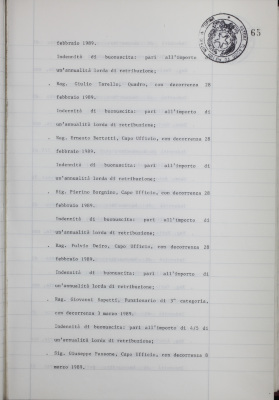 65
febbraio 1989.
Indennità di buonuscita: pari all'importo di
un'annualità lorda di retribuzione;
. Rag. Giulio Quadro, con decorrenza 28
febbraio 1989.
Indennità di buonuscita: pari all'importo di
un'annualità lorda di retribuzione;
. Rag. Ernesto Capo Ufficio, con decorrenza 28
febbraio 1989.
Indennità di buonuscita: pari all'importo di
un'annualità lorda di retribuzione;
. Sig. Pierino Borgnini, Capo Ufficio, con decorrenza 28
febbraio 1989.
Indennità di buonuscita: pari all'importo di
un'annualità lorda di retribuzione;
. Rag. Fulvio Capo Ufficio, con decorrenza 28
febbraio 1989.
Indennità di buonuscita: pari all'importo di
un'annualità lorda di retribuzione;
. Rag. Giovanni Funzionario di 2^ categoria,
con decorrenza 3 marzo 1989.
Indennità di buonuscita: pari all'importo di 4/5 di
un'annualità lorda di retribuzione;
. Sig. Giuseppe Capo Ufficio, con decorrenza 8
marzo 1989.